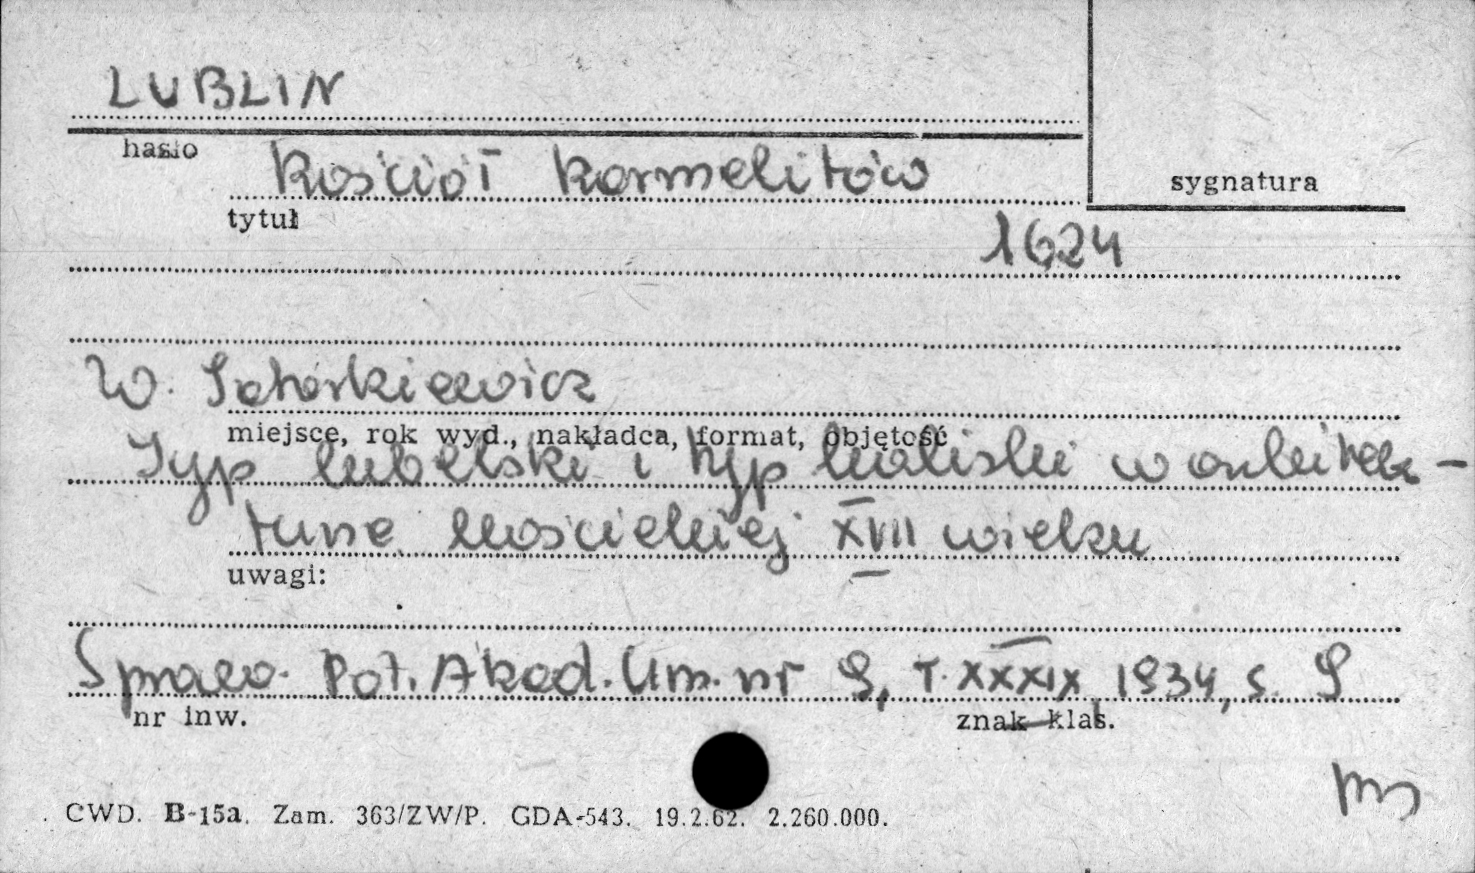 LUBLIN
hasło
Kościół Karmelitów
sygnatura
tytuł
1624
W.
miejsce, rok wyd., nakładca, format, objętość
Typ lubelski i typ kaliski w architek-
turze kościelnej XVII wieku
uwagi:
Spraw. Pol. Akad. Um. nr 9, T. XXXIX 1934, s. 9
nr inw.
znak klas.
CWD. B-15a. Zam. 363/ZW/P. GDA-543. 19.2.62. 2.260.000.